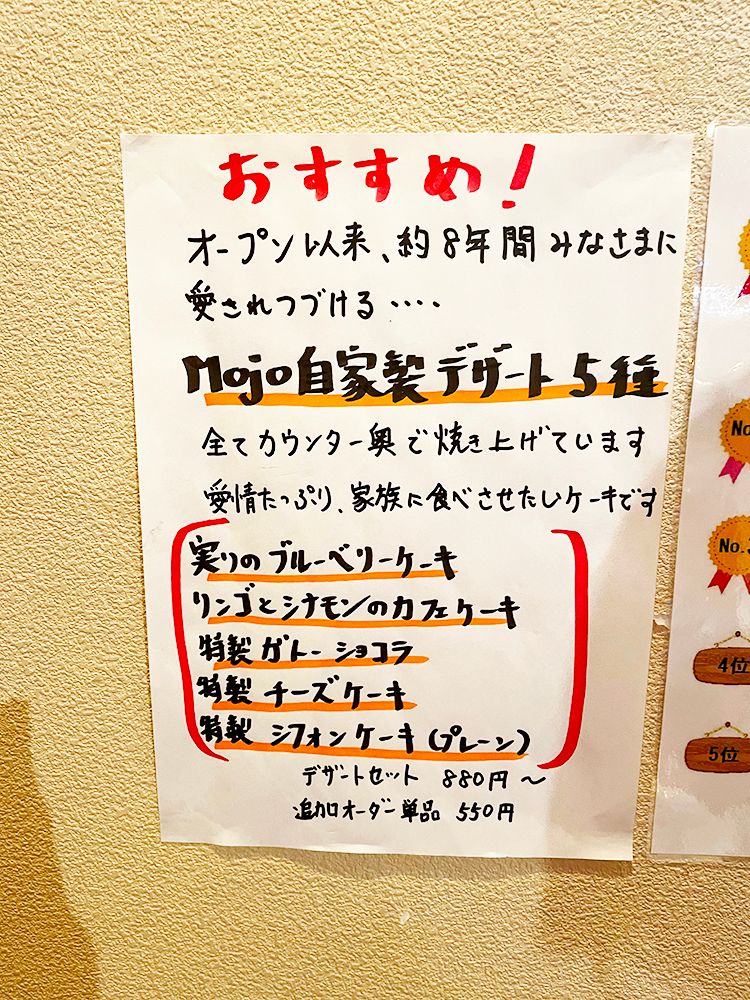 おすすめ！
オープン以来、約8年間みなさまに
愛されつづける・・・・
Mojo自家製デザート5種
全てカウンター奥で焼き上げています
愛情たっぷり、家族に食べさせたいケーキです
実りのブルーベリーケーキ
リンゴとシナモンのカフェケーキ
特製ガトーショコラ
特製チーズケーキ
特製シフォンケーキ(プレーン)
デザートセット 880円～
追加オーダー単品 550円
No
No.3
4位
5位